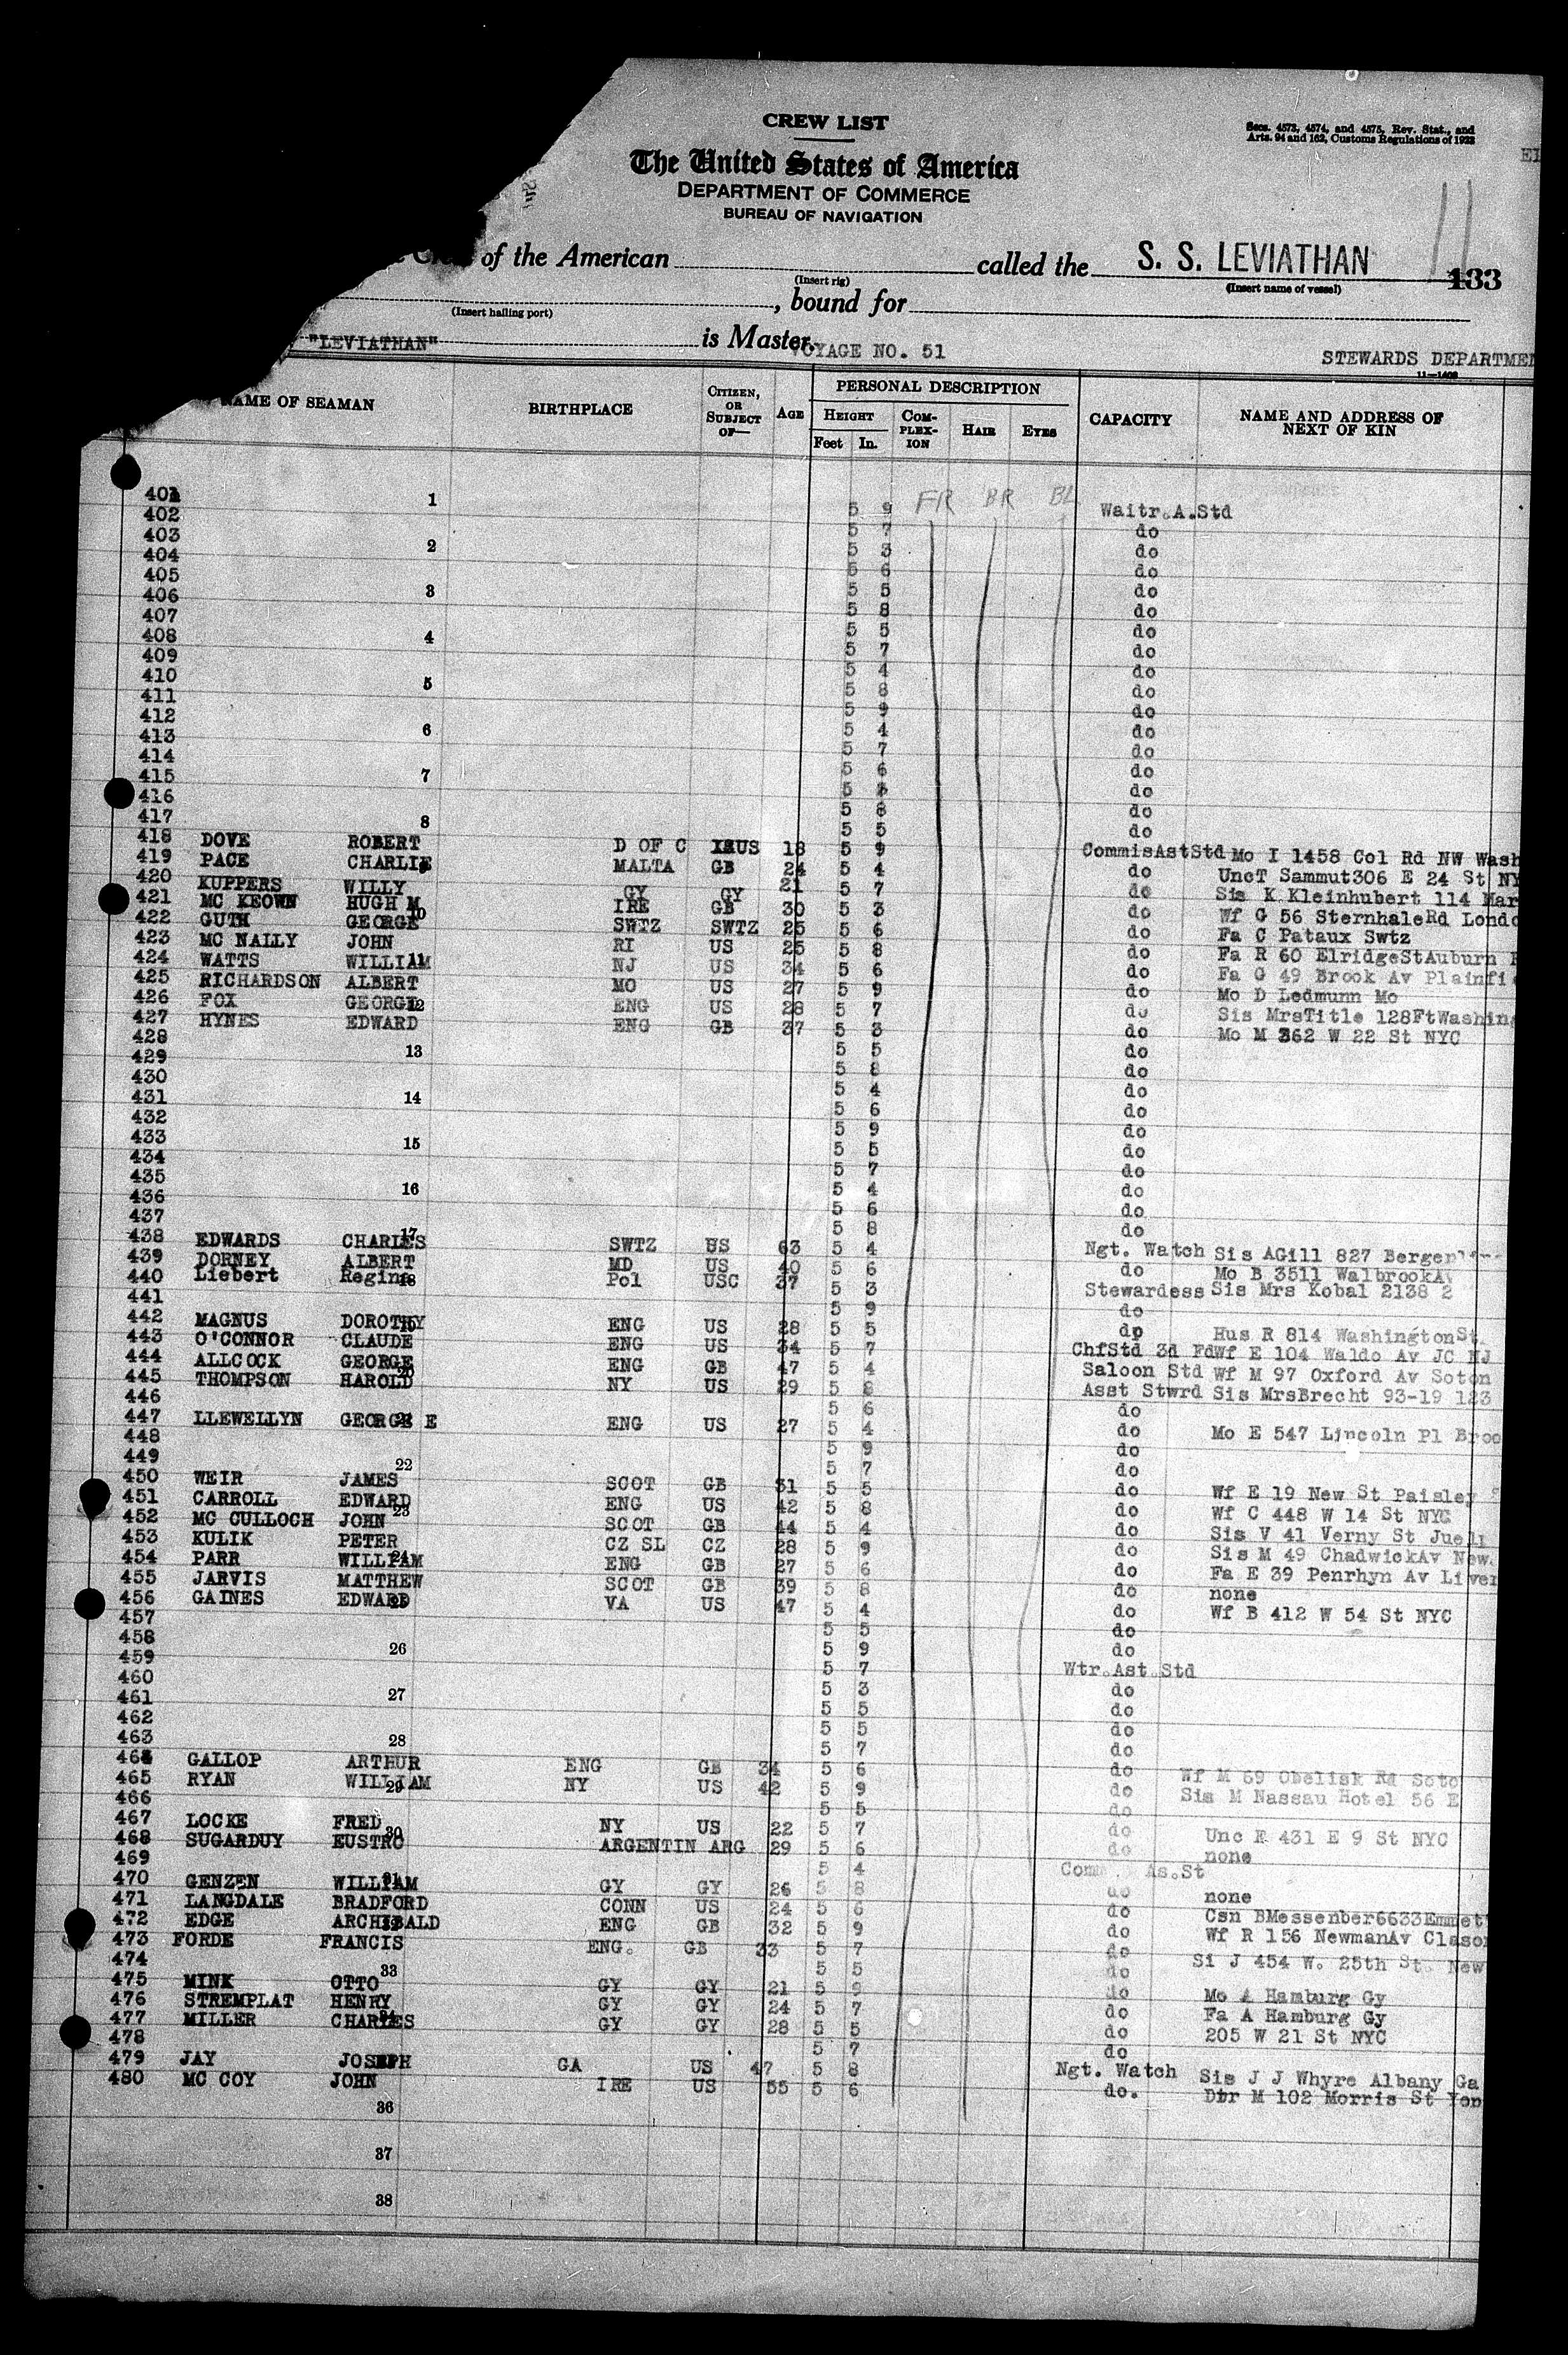 CREW LIST
Secs. 4573, 4574, and 4575, Rev. Stat., and
Arts. 94 and 162, Customs Regulations of 1923
The United States of America
DEPARTMENT OF COMMERCE
BUREAU OF NAVIGATION
11
of the American called the S. S. LEVIATHAN 133
(Insert rig) (Insert name of vessel)
, bound for
(Insert hailing port)
"LEVIATHAN" is Master. VOYAGE NO. 51 STEWARDS DEPARTMEN
11—1408
NAME OF SEAMAN BIRTHPLACE CITIZEN, OR SUBJECT OF— AGE PERSONAL DESCRIPTION CAPACITY NAME AND ADDRESS OF NEXT OF KIN
HEIGHT COM-PLEX-ION HAIR EYES
Feet In.
401 1 5 9 FR BR BL Waitr.A.Std
402 5 7 do
403 2 5 3 do
404 5 6 do
405 3 5 5 do
406 5 8 do
407 5 5 do
408 4 5 7 do
409 5 4 do
410 5 5 8 do
411 5 9 do
412 6 5 4 do
413 5 7 do
414 5 6 do
415 7 5 do
416 5 8 do
417 8 5 5 do
418 DOVE ROBERT D OF C US 18 5 9 CommisAstStd Mo I 1458 Col Rd NW Wash
419 PACE CHARLIE MALTA GB 24 5 4 do UncT Sammut306 E 24 St NY
420 KUPPERS WILLY GY GY 21 5 7 do Sis K Kleinhubert 114 Mar
421 MC KEOWN HUGH M 10 IRE GB 30 5 3 do Wf G 56 SternhaleRd Londo
422 GUTH GEORGE SWTZ SWTZ 25 5 6 do Fa C Pataux Swtz
423 MC NALLY JOHN RI US 25 5 8 do Fa R 60 ElridgeStAuburn
424 WATTS WILLIAM 11 NJ US 34 5 6 do Fa G 49 Brook Av Plainfi
425 RICHARDSON ALBERT MO US 27 5 9 do Mo D Ledmunn Mo
426 FOX GEORGE 12 ENG US 28 5 7 do Sis MrsTitle 128FtWashin
427 HYNES EDWARD ENG GB 37 5 3 do Mo M 362 W 22 St NYC
428 13 5 5 do
429 5 8 do
430 5 4 do
431 14 5 6 do
432 5 9 do
433 15 5 5 do
434 5 7 do
435 16 5 4 do
436 5 6 do
437 5 8 do
438 EDWARDS CHARLES 17 SWTZ US 63 5 4 Ngt. Watch Sis AGill 827 Bergen
439 DORNEY ALBERT MD US 40 5 6 do Mo B 3511 WalbrookAv
440 Liebert Regina 18 Pol USC 37 5 3 Stewardess Sis Mrs Kobal 2138 2
441 5 9 do
442 MAGNUS DOROTHY 19 ENG US 28 5 5 dp Hus R 814 WashingtonSt
443 O'CONNOR CLAUDE ENG US 34 5 7 ChfStd 3d Fd Wf E 104 Waldo Av JC NJ
444 ALLCOCK GEORGE 20 ENG GB 47 5 4 Saloon Std Wf M 97 Oxford Av Soton
445 THOMPSON HAROLD NY US 29 5 8 Asst Stwrd Sis MrsBrecht 93-19 123
446 5 6 do
447 LLEWELLYN GEORGE E 21 ENG US 27 5 4 do Mo E 547 Lincoln Pl Broo
448 5 9 do
449 22 5 7 do
450 WEIR JAMES SCOT GB 31 5 5 do Wf E 19 New St Paisley
451 CARROLL EDWARD 23 ENG US 42 5 8 do Wf C 448 W 14 St NYC
452 MC CULLOCH JOHN SCOT GB 44 5 4 do Sis V 41 Verny St
453 KULIK PETER CZ SL CZ 28 5 9 do Sis M 49 ChadwickAv New
454 PARR WILLIAM 24 ENG GB 27 5 6 do Fa E 39 Penrhyn Av Liver
455 JARVIS MATTHEW SCOT GB 39 5 8 do none
456 GAINES EDWARD 25 VA US 47 5 4 do Wf B 412 W 54 St NYC
457 5 5 do
458 26 5 9 do
459 5 7 Wtr.Ast.Std
460 27 5 3 do
461 5 5 do
462 5 5 do
463 28 5 7 do
464 GALLOP ARTHUR ENG GB 34 5 6 do Wf M 69 Obelisk Rd Soto
465 RYAN WILLIAM 29 NY US 42 5 9 do Sis M Nassau Hotel 56 E
466 5 5 do
467 LOCKE FRED 30 NY US 22 5 7 do Unc R 431 E 9 St NYC
468 SUGARDUY EUSTRO ARGENTIN ARG 29 5 6 do none
469 5 4 Comm As.St
470 GENZEN WILLIAM 31 GY GY 26 5 8 do none
471 LANGDALE BRADFORD CONN US 24 5 6 do Csn BMessenber6633Emmet
472 EDGE ARCHIBALD 32 ENG GB 32 5 9 do Wf R 156 NewmanAv Claso
473 FORDE FRANCIS ENG. GB 33 5 7 do Si J 454 W. 25th St. New
474 33 5 5 do
475 MINK OTTO GY GY 21 5 9 do Mo A Hamburg Gy
476 STREMPLAT HENRY GY GY 24 5 7 do Fa A Hamburg Gy
477 MILLER CHARLES 34 GY GY 28 5 5 do 205 W 21 St NYC
478 5 7 do
479 JAY JOSEPH GA US 47 5 8 Ngt. Watch Sis J J Whyre Albany Ga
480 MC COY JOHN IRE US 55 5 6 do. Dtr M 102 Morris St Yon
36
37
38